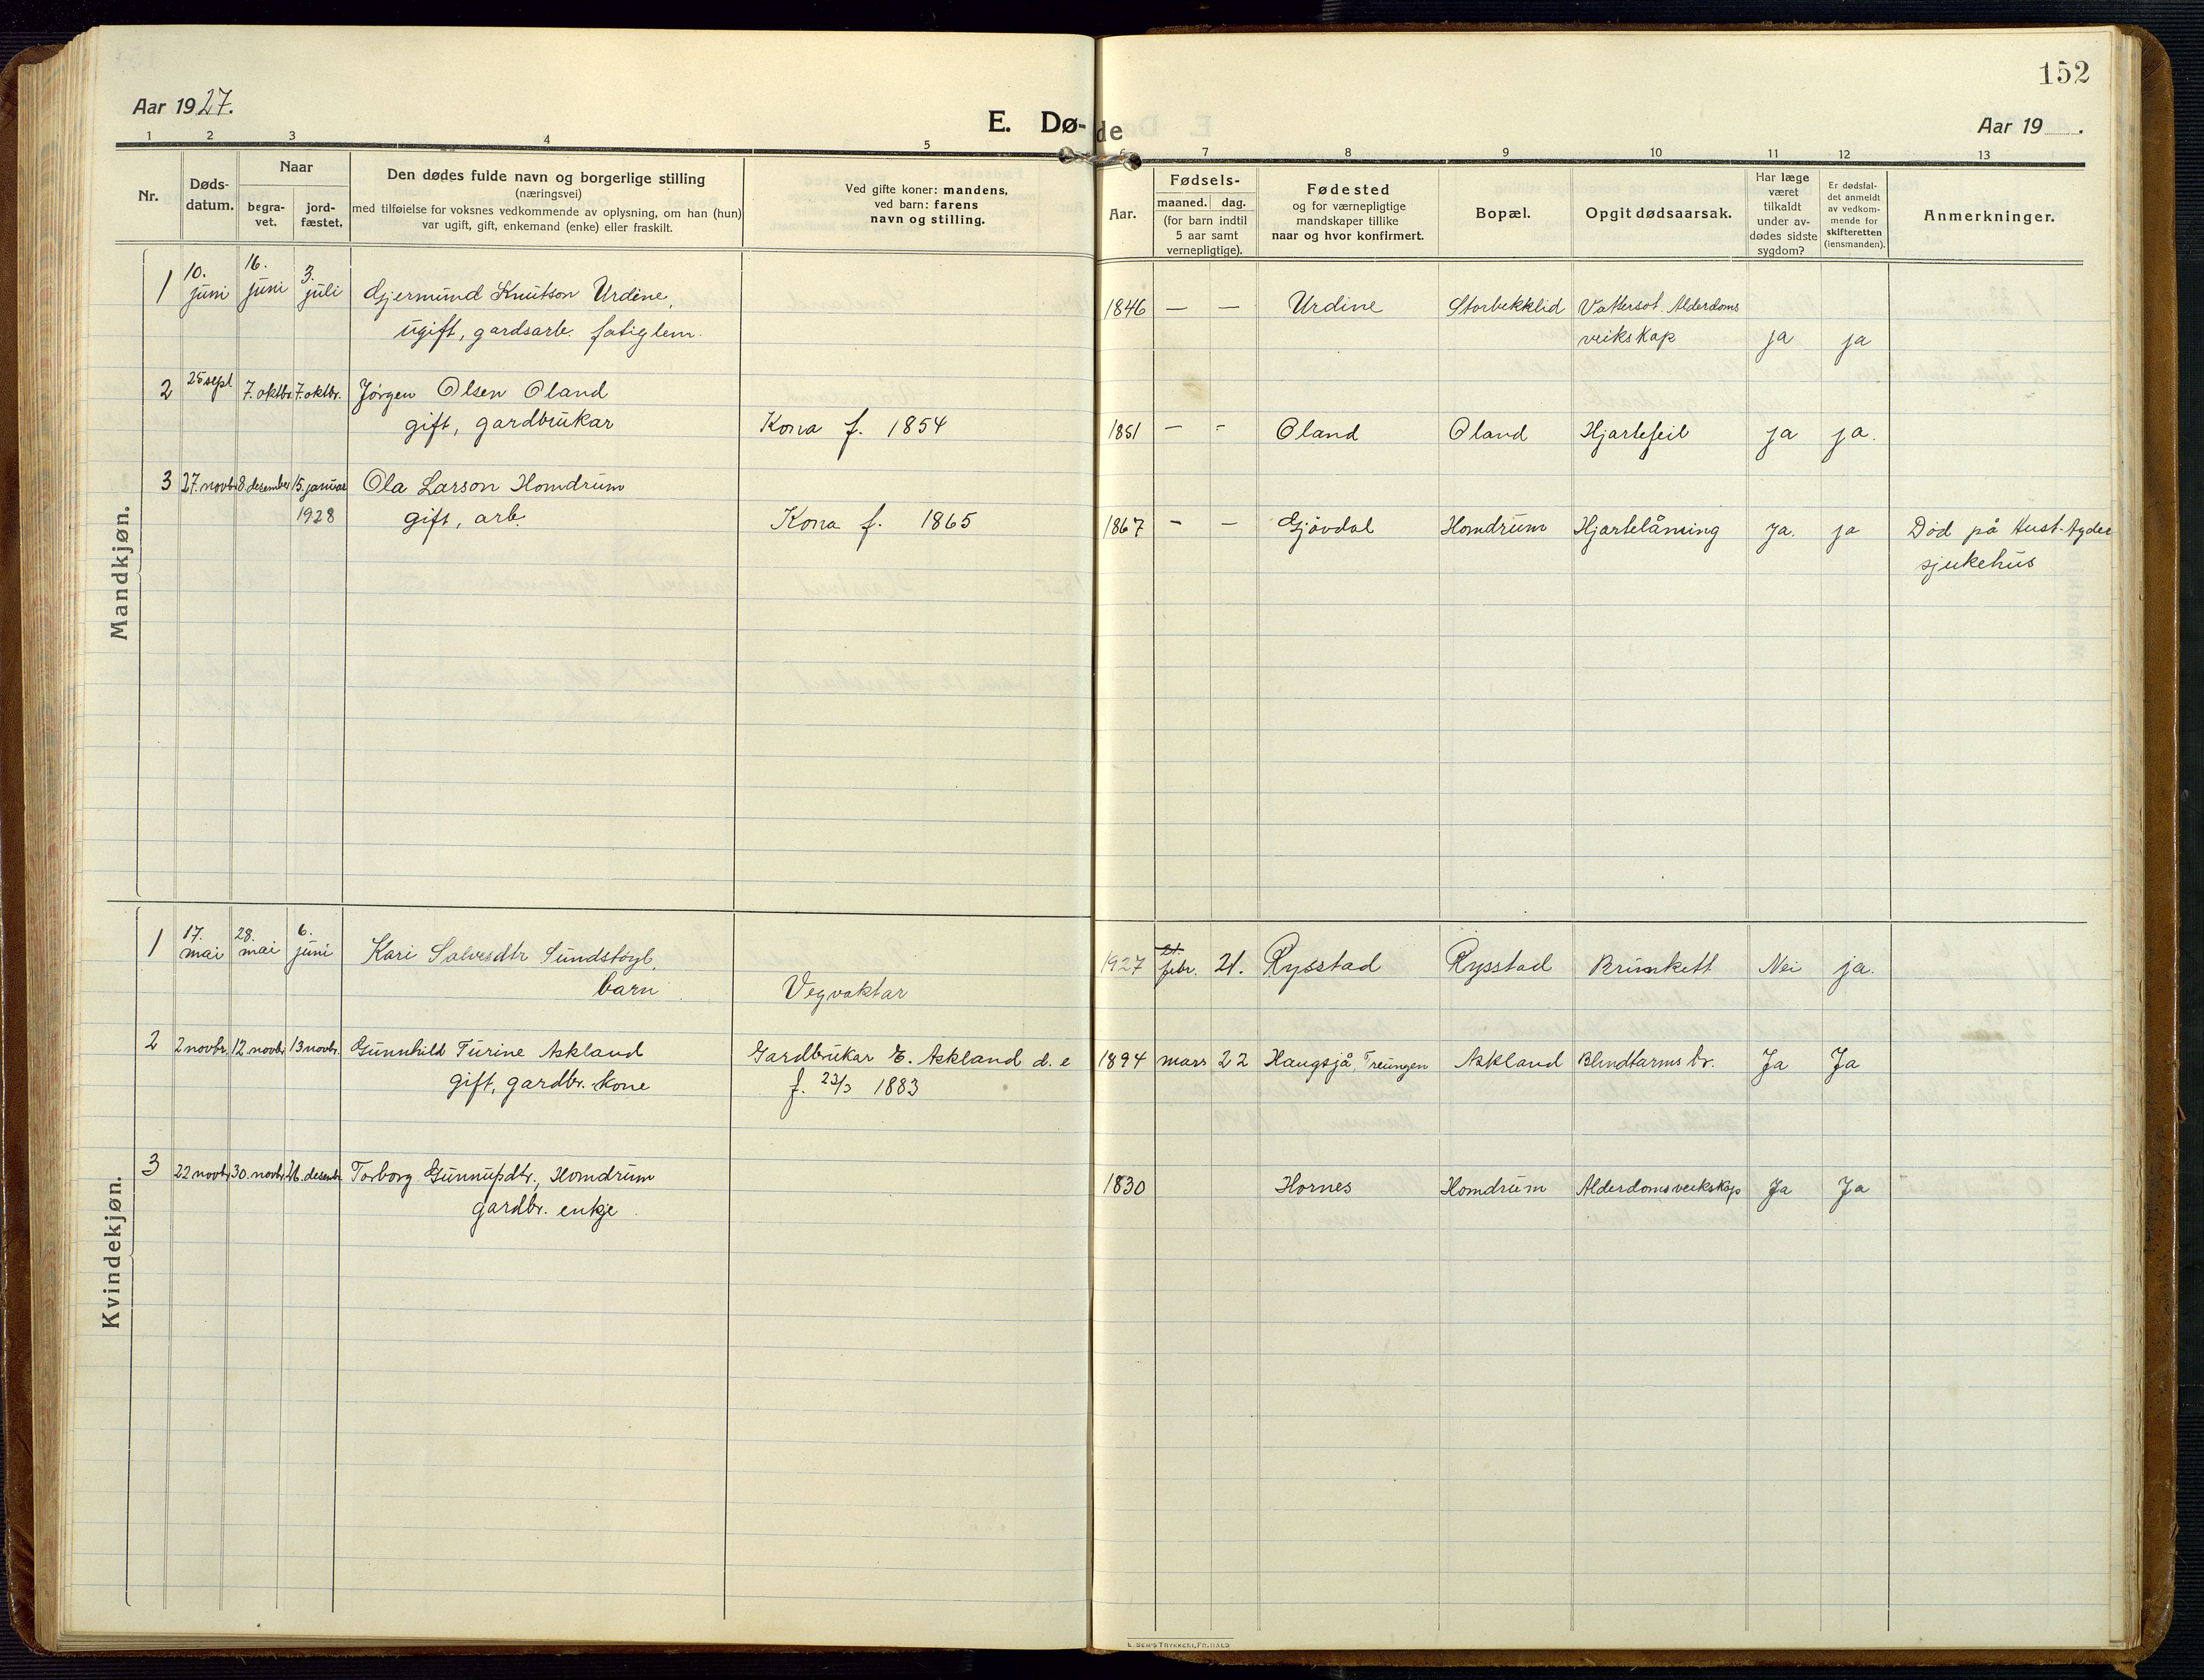 152
Aar 1927.
E. Dø-de
Aar 19 .
1 2 3 4 5 6 7 8 9 10 11 12 13
Nr.
Døds-
datum.
Naar
begra-
vet.
jord-
fæstet.
Den dødes fulde navn og borgerlige stilling
(næringsvei)
med tilføielse for voksnes vedkommende av oplysning, om han (hun)
var ugift, gift, enkemand (enke) eller fraskilt.
Ved gifte koner: mandens,
ved barn: farens
navn og stilling.
Aar.
Fødsels-
maaned. dag.
(for barn indtil
5 aar samt
vernepligtige).
Fødested
og for værnepligtige
mandskaper tillike
naar og hvor konfirmert.
Bopæl.
Opgit dødsaarsak.
Har læge
været
tilkaldt
under av-
dødes sidste
sygdom?
Er dødsfal-
det anmeldt
av vedkom-
mende for
skifteretten
(lensmanden).
Anmerkninger.
Mandkjøn.
1 10. juni 16. juni 3. juli Gjermund Knutson Urdine, 1846 — — Urdine Storbekklid Vattersot. Alderdoms
ugift, gardsarb. fatiglem. veikskap ja ja
2 25 sept. 7. oktbr. 7. oktbr. Jørgen Olsen Oland
gift, gardbrukar Kona f. 1854 1851 - - Oland Oland Hjartefeil ja ja.
3 27. novbr. 8. desember 15. januar Ola Larson Homdrum
1928 gift, arb. Kona f. 1865 1867 - - Gjövdal Homdrum Hjartelåming Ja. ja Död på Aust-Agder
sjukehus
Kvindekjøn.
1 17. mai 28. mai 6. juni Kari Salvesdtr Sundstøyl, 1927 21. febr. 21. Rysstad Rysstad Brunkett Nei ja.
barn Vegvaktar
2 2 novbr. 12 novbr. 13 novbr. Gunnhild Turine Askland Gardbrukar E. Askland d. e 1894 mars 22 Haugsjå, Treungen Askland Blindtarms br. Ja Ja
gift, gardbr. kone f. 23/3 1883
3 22 novbr. 30. novbr. 26. desembr. Torborg Gunnufsdtr., Homdrum 1830 Hornes Homdrum Alderdomsveikskap Ja Ja
gardbr. enkje.